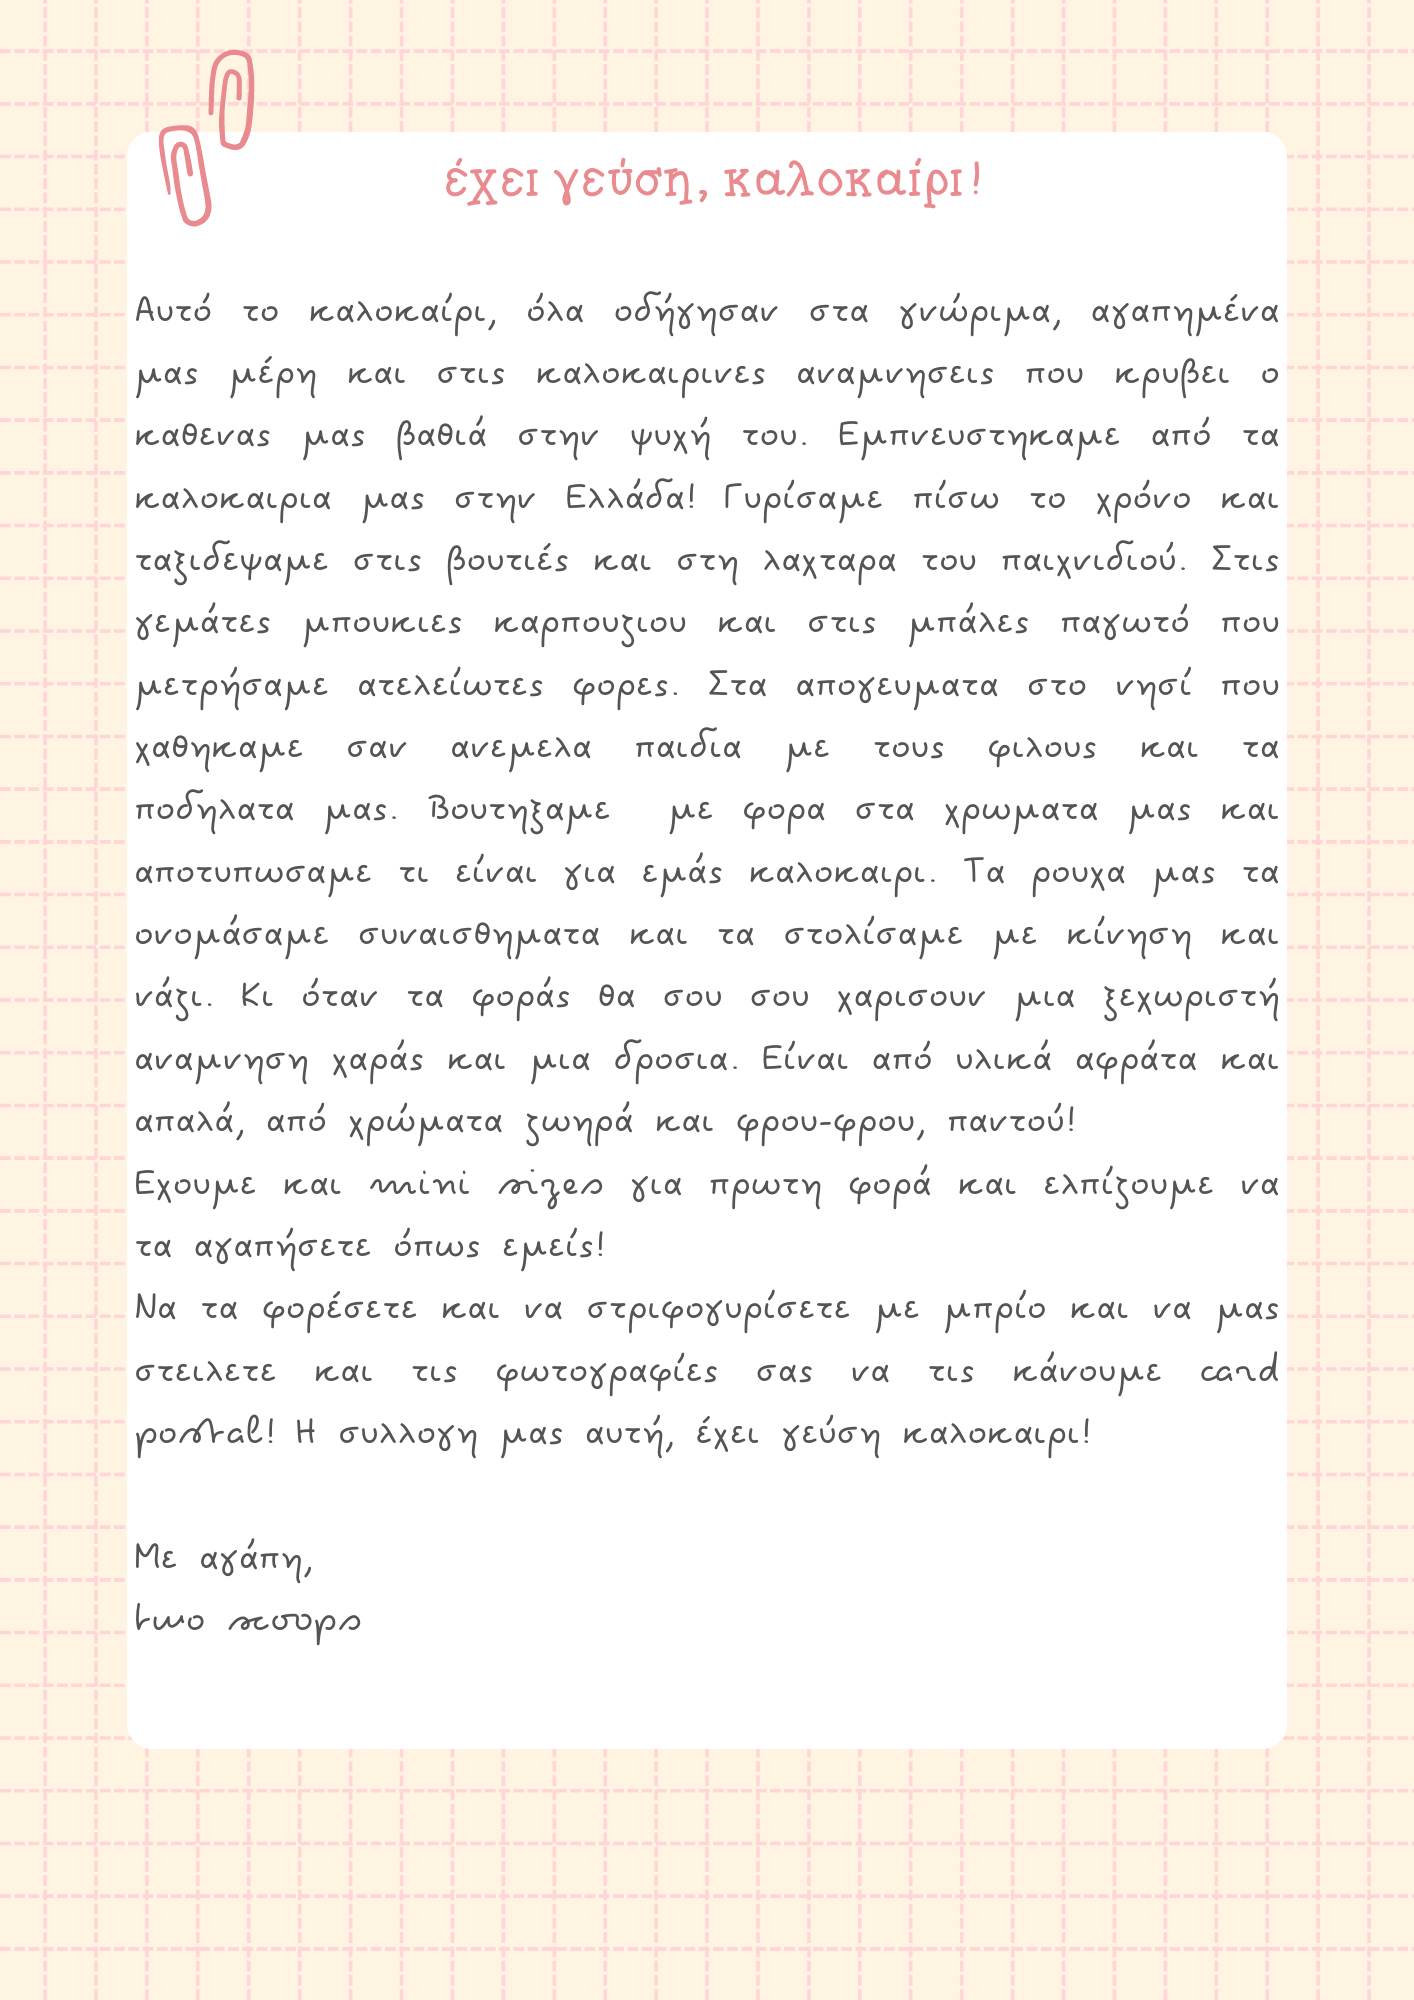 έχει γεύση, καλοκαίρι!
Αυτό το καλοκαίρι, όλα οδήγησαν στα γνώριμα, αγαπημένα
μας μέρη και στις καλοκαιρινες αναμνησεις που κρυβει ο
καθενας μας βαθιά στην ψυχή του. Εμπνευστηκαμε από τα
καλοκαιρια μας στην Ελλάδα! Γυρίσαμε πίσω το χρόνο και
ταξιδεψαμε στις βουτιές και στη λαχταρα του παιχνιδιού. Στις
γεμάτες μπουκιες καρπουζιου και στις μπάλες παγωτό που
μετρήσαμε ατελείωτες φορες. Στα απογευματα στο νησί που
χαθηκαμε σαν ανεμελα παιδια με τους φιλους και τα
ποδηλατα μας. Βουτηξαμε με φορα στα χρωματα μας και
αποτυπωσαμε τι είναι για εμάς καλοκαιρι. Τα ρουχα μας τα
ονομάσαμε συναισθηματα και τα στολίσαμε με κίνηση και
νάζι. Κι όταν τα φοράς θα σου σου χαρισουν μια ξεχωριστή
αναμνηση χαράς και μια δροσια. Είναι από υλικά αφράτα και
απαλά, από χρώματα ζωηρά και φρου-φρου, παντού!
Εχουμε και mini sizes για πρωτη φορά και ελπίζουμε να
τα αγαπήσετε όπως εμείς!
Να τα φορέσετε και να στριφογυρίσετε με μπρίο και να μας
στειλετε και τις φωτογραφίες σας να τις κάνουμε card
postal! Η συλλογη μας αυτή, έχει γεύση καλοκαιρι!
Με αγάπη,
two scoops